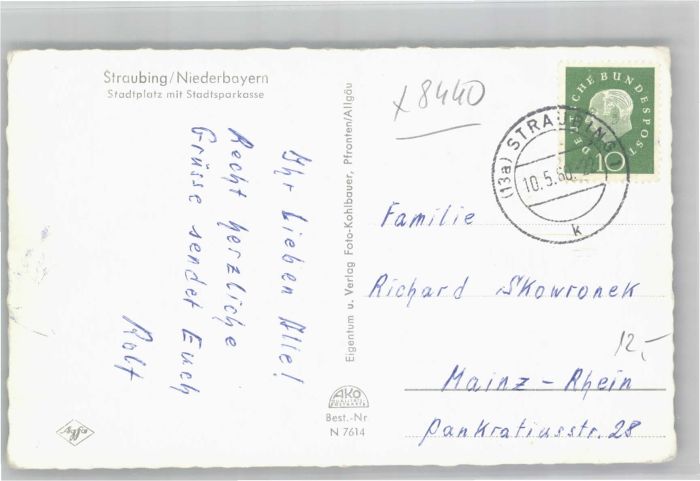 Straubing/Niederbayern
Stadtplatz mit Stadtsparkasse
Ihr Lieben Alle!
Recht herzliche
Grüsse sendet Euch
Rolf
Agfa
Eigentum u. Verlag Foto-Kohlbauer, Pfronten/Allgäu
AKO
Best.-Nr
N 7614
x 8440
DEUTSCHE BUNDESPOST
10
(13a) STRAUBING
10.5.60.
k
Familie
Richard Skowronek
12,-
Mainz-Rhein
Pankratiusstr. 28